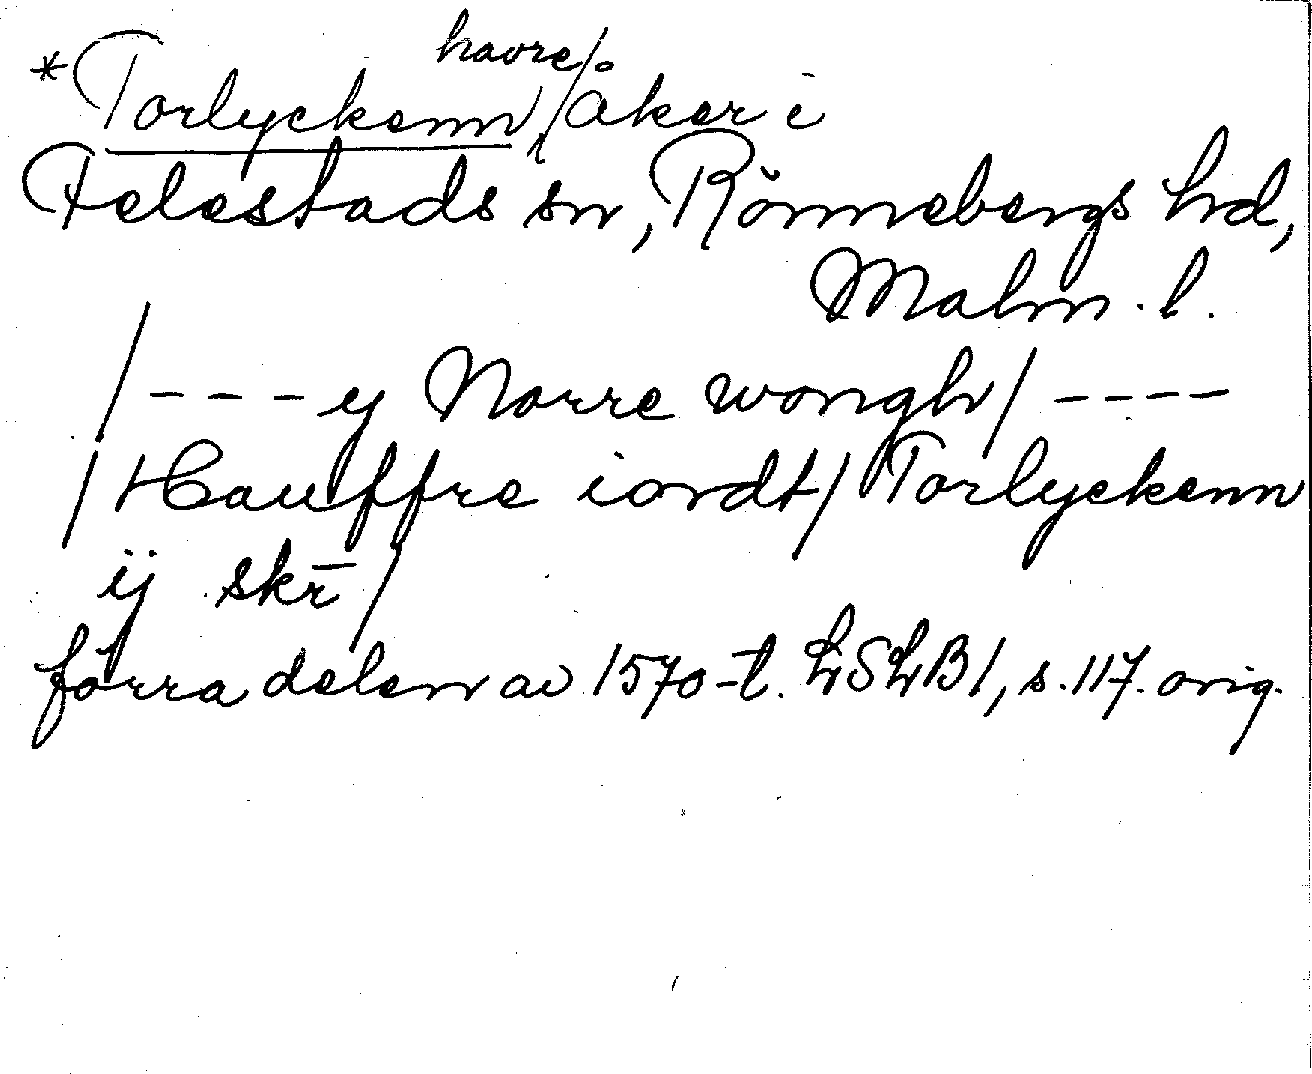 *Torlyckenn, havre/åker i
Felestads sn, Rönnebergs hd,
Malm. l.
/- - - - y Norre wongh/ - - - -
/Hauffre iordt/ Torlyckenn
ij skr̄/
förra delen av 1570-t. LSLB1, s. 117. orig.